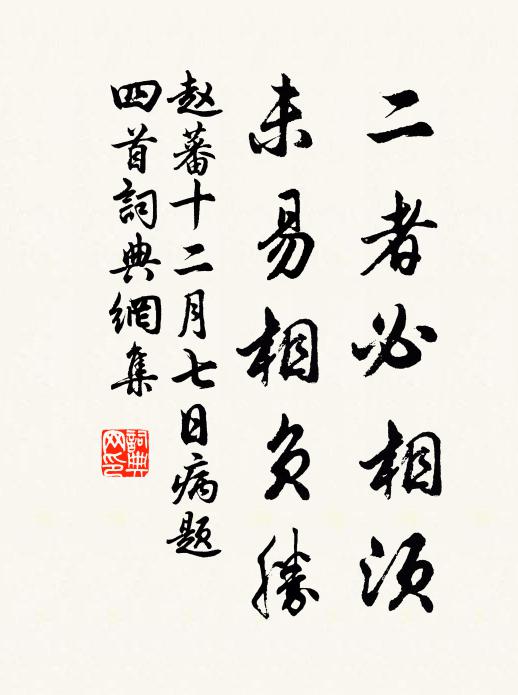 二者必相须
未易相负勝
赵蕃十二月七日病题
四首詞典網集
詞典
网印